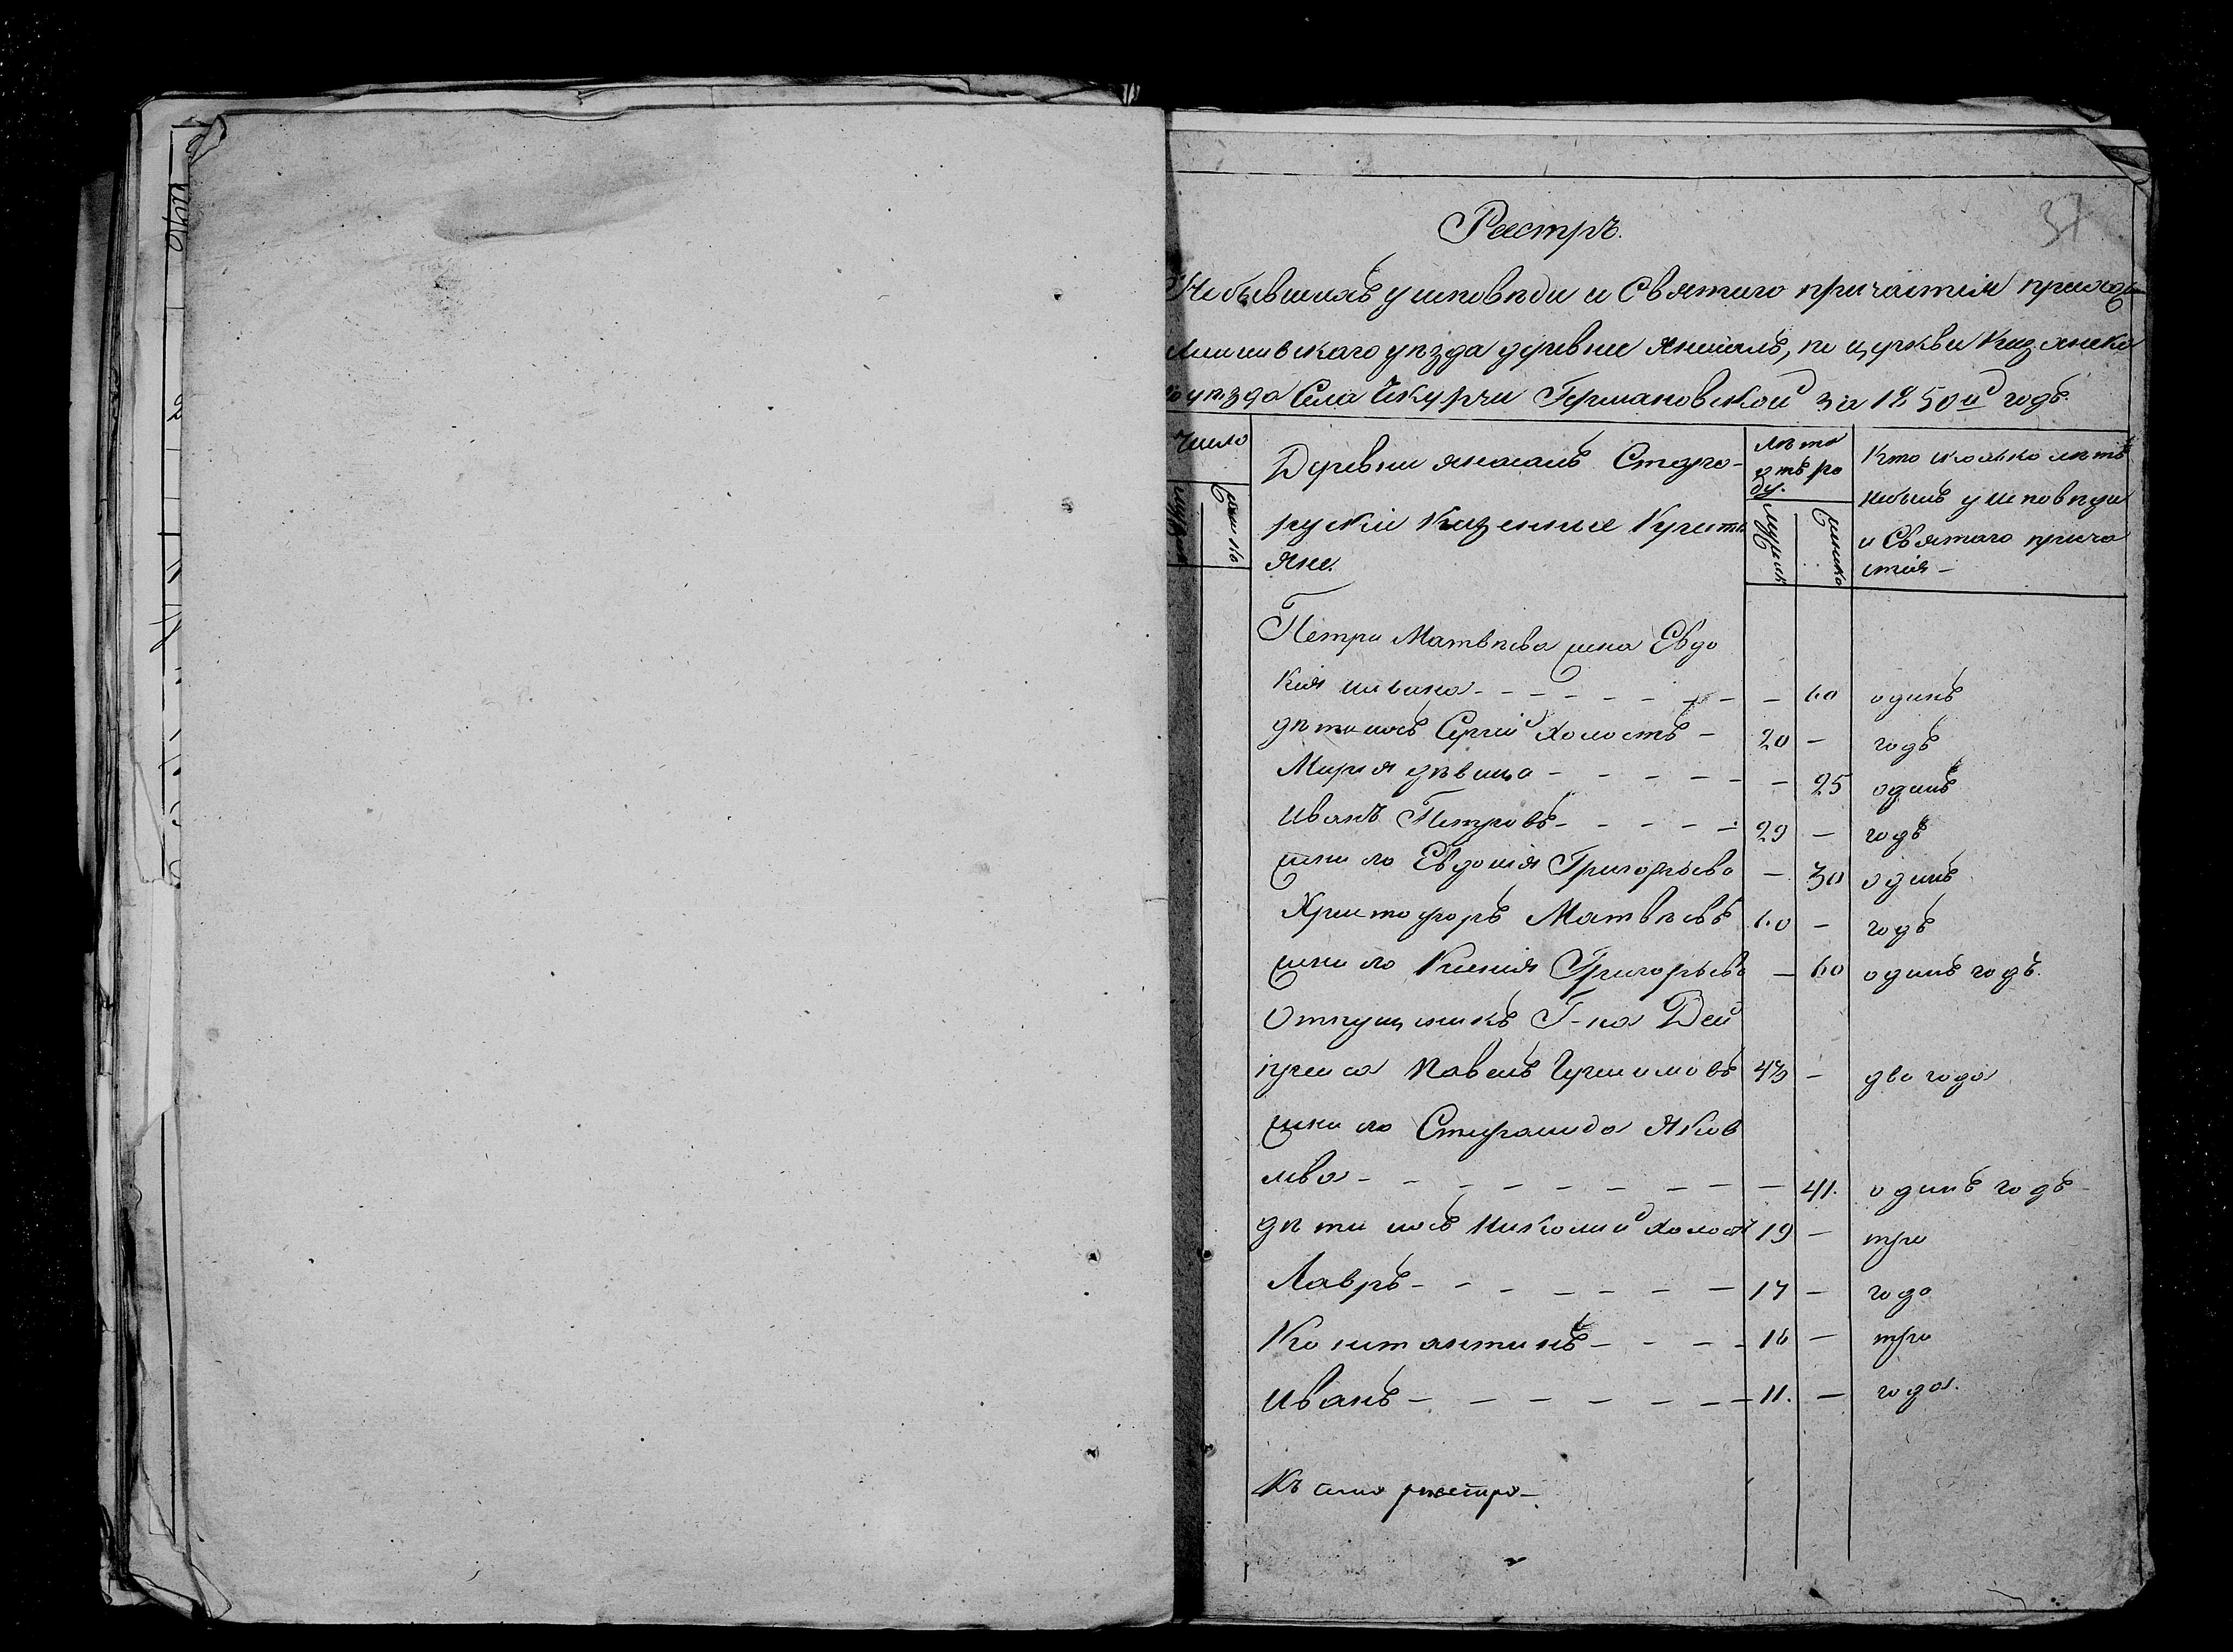 Реестръ.
37
Небывшихъ у исповѣди и Святаго причастія прихож
Лаишевскаго уѣзда деревни Янасалъ, по церкви Казанска
го уѣзда Села Чекурчи Германовской за 1850й годъ.
Число
мужеск
женско
Деревни янасалъ Старо-
рускіе Казенные Кресть
яне.
Лѣта
отъ ро
ду.
Мужеск
Женско
Кто сколько лѣтъ
небылъ у исповѣди
и Святаго прича
стія -
Петра Матвѣева жена Евдо
кія - - - - - - - - 60 одинъ
дѣти ихъ Сергій холостъ - 20 - годъ
Марія дѣвица - - - - - - 25 одинъ
Иванъ Петровъ - - - - - 29 - годъ
жена его Евдокія Григорьева - 30 одинъ
Христофоръ Матвѣевъ 60 - годъ
жена его Ксенія Григорьева - 60 одинъ годъ.
Отпущеникъ Г-на Дей
Павелъ 43 - два года
жена его Степанида Яков
лева - - - - - - - - - 41. одинъ годъ -
дѣти ихъ Николай холостъ 19 - три
Лавръ - - - - - - - 17 - года
Константинъ - - - - 16 - три
Иванъ - - - - - - - 11. - года.
Къ сему реестру -